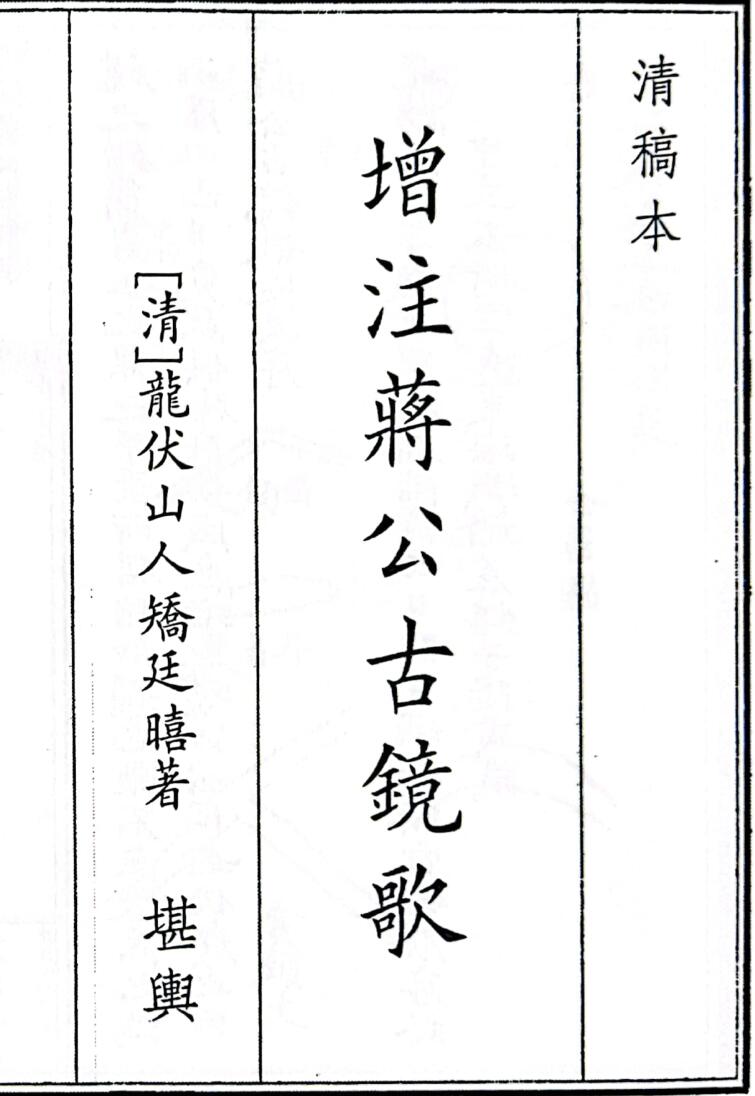 清稿本
增注蔣公古鏡歌
[清]龍伏山人矯廷曦著 堪輿